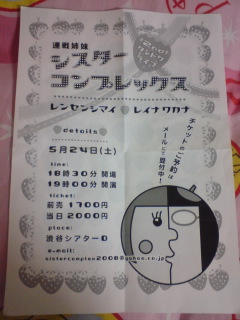 連戦姉妹
シスター
コンプレックス
レンセンシマイ レイナワカナ
details
5月24日(土)
time:
18時30分 開場
19時00分 開演
ticket:
前売 1700円
当日 2000円
place:
渋谷シアターD
e-mail:
sistercomplex2008@yahoo.co.jp
チケットのご予約は
メールにて受付中!
2nd!
ツーマン
ライブ